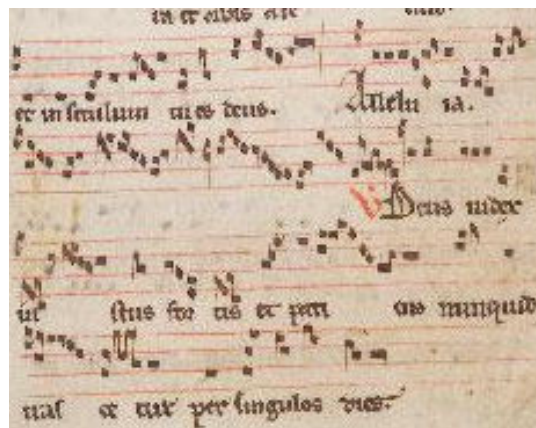 et orbis a se
et in seculum tu es deus. Allelu ia.
℣ Deus iudex
iu stus for tis et pati ens nunquid
iras ce tur per singulos dies.